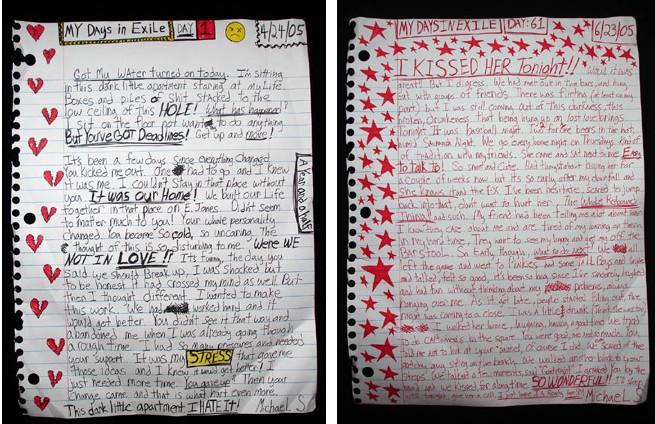 MY DAYS IN EXILE DAY 1 4/24/05
Got My Water turned on today. I'm sitting
in this dark little apartment staring at my Life.
Boxes and piles of shit stacked to the
low ceiling of this HOLE! What has happened?
I sit on the floor not wanting to do anything.
But You've GOT Deadlines! Get up and move!
It's been a few days since everything changed.
You kicked me out. One had to go and I knew
it was me. I couldn't stay in that place without
you. It was our Home! We built our Life
together in that place on E. Jones. Didn't seem
to matter much to you! Your whole personality
changed. You became so cold, so uncaring. The
thought of this is so disturbing to me. Were WE
NOT IN LOVE!! It's funny, the day you
said we should Break up, I was shocked but
to be honest it had crossed my mind as well. But
then I thought different. I wanted to make
this work. We had worked hard and it
would get better. You didn't see it that way and
abandoned me when I was already going though
a rough time. I had so many pressures and needed
your support. It was my STRESS that gave me
those ideas and I knew it would get better! I
just needed more time. You gave up! Then your
change came and that is what hurt even more.
This dark little apartment I HATE IT! Michael S.
A Year and a half
MY DAYS IN EXILE DAY: 61 6/23/05
I KISSED HER Tonight!!
great! But I digress. We had met out in Two bars, and hung
out with groups of friends. There was flirting
part) but I was still coming out of This darkness, this
prolon, drunkeness that being hung up on lost love brings.
Tonight it was baseball night. Two for one beers in the hot,
humid Savannah Night. We go every home game on Thursdays. Kind of
a tradition with my friends. She came and sat next to me. Easy
To Talk To! So smart and cute. I had thought about asking her
a couple of weeks now but it's so early after my downfall and
she knows and the EX. I've been hesitate, scared to jump
back into that, don't want to hurt her. The Whole Rebound
Thing!! and such. My friend had been telling me alot about
I know they care about me and are tired of me
They want to see my happy and get me off the
Barstool. So Early though, what to do NOW? We all
left the game and went to Pinkies. and some
and talked, felt so good. It's been so long since I've sincerely laughed
and had fun without thinking about my problems, always
hanging over me. As it got late, people started filin out, the
night was coming to a close. I was a Little drunk
I walked her home, laughing, having a good time. We had
SO WONDERFUL!! I'll sleep
Michael S.